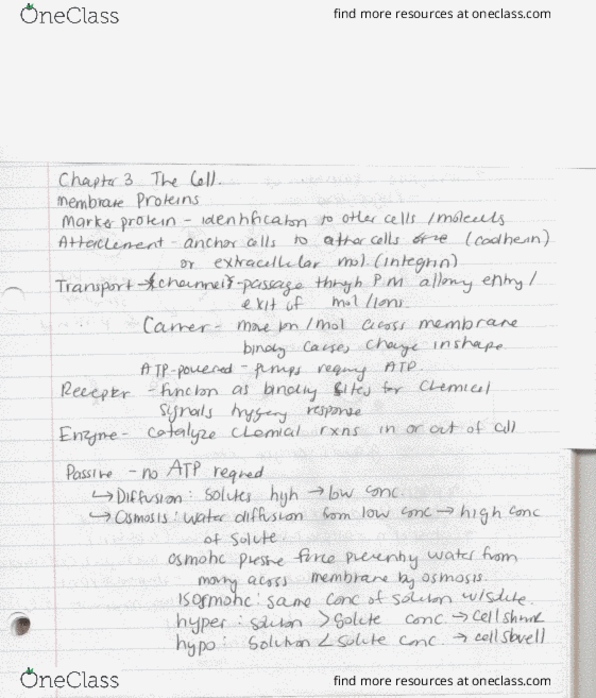 OneClass
find more resources at oneclass.com
Chapter 3 The Cell.
Membrane Proteins
Marker protein - identification to other cells / molecules
Attachment - anchor cells to other cells (cadherin)
or extracellular mol. (integrin)
Transport - channels - passage through P.M allowing entry /
exit of mol / ions.
Carrier - move ion / mol across membrane
binding causes change in shape
ATP-powered - pumps requiring ATP.
Receptor - function as binding sites for chemical
signals triggering response
Enzyme - catalyze chemical rxns in or out of cell
Passive - no ATP required
↳ Diffusion : solutes high → low conc.
↳ Osmosis : water diffusion from low conc → high conc
of solute
osmotic pressure force preventing water from
moving across membrane by osmosis.
Isosmotic : same conc of solution w/ solute.
hyper : solution > solute conc. → cell shrink
hypo : solution < solute conc. → cell swell
OneClass
find more resources at oneclass.com